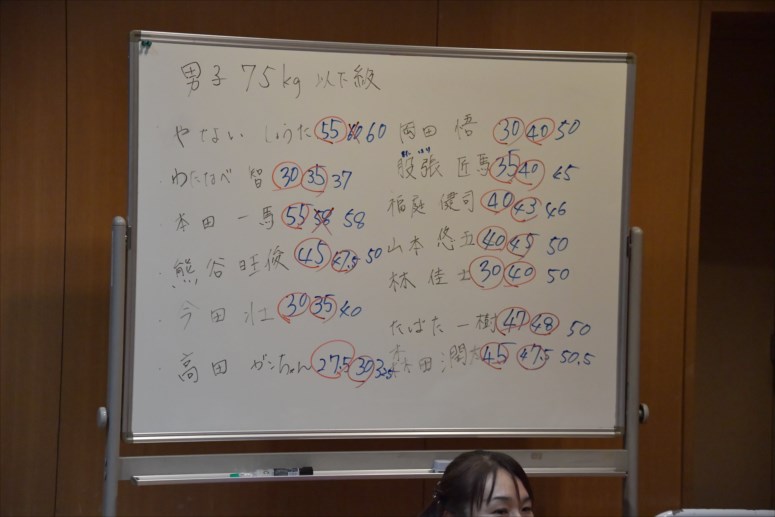 男子 75kg 以下級
やない しょうた 55 60 60
わたなべ 智 30 35 37
本田 一馬 55 58 58
熊谷旺俊 45 47.5 50
今田 壮 30 35 40
高田 がっちゃん 27.5 30 32.5
岡田 悟 30 40 50
服張 匠馬 35 40 45
稲庭 健司 40 43 46
山本 悠五 40 45 50
林 佳士 30 40 50
たばた 一樹 47 48 50
田 潤 45 47.5 50.5